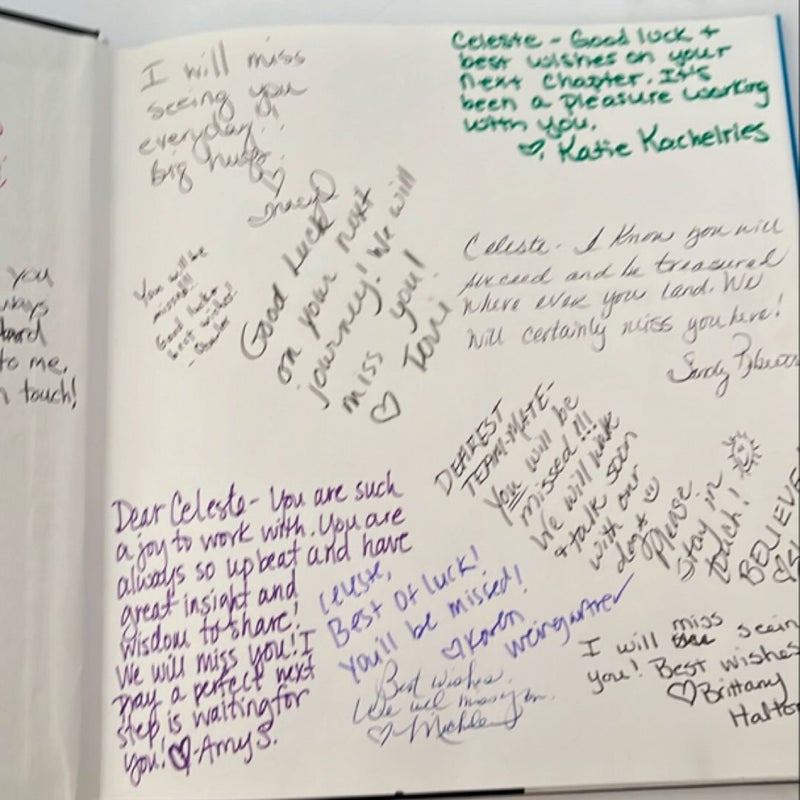 you
to me.
touch!
I will miss
seeing you
everyday!!
big hugs!
♡ Tracy
Celeste - Good luck +
best wishes on your
next chapter. It's
been a pleasure working
with you.
♡, Katie Kachelries
You will be
missed!!
Good luck +
best wishes!
Good Luck
on your next
journey! We will
miss you!
♡ Terri
Celeste - I know you will
succeed and be treasured
where ever you land. We
will certainly miss you here!
Sandy
DEAREST
TEAM-MATE-
You will be
missed!!!
We will walk
+ talk soon
with our
dogs ☺
Please
stay in
touch!
BELIEVE
Dear Celeste- You are such
a joy to work with. You are
always so upbeat and have
great insight and
wisdom to share!
We will miss you! I
pray a perfect next
step is waiting for
you! ♡-Amy S.
Celeste,
Best Of luck!
You'll be missed!
♡ Karen
Weingartner
Best wishes.
We will miss you.
♡ Michele
I will miss seein
you! Best wishes
♡ Brittany
Halter